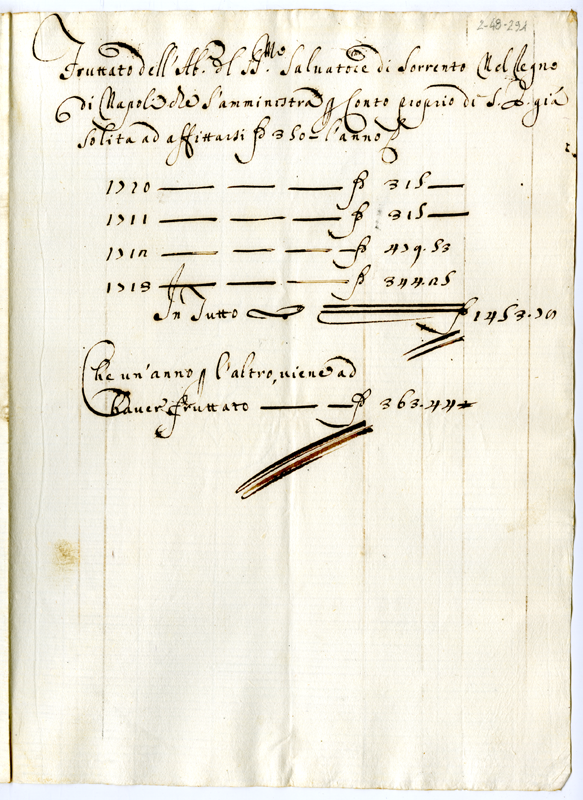 2-48-291
Fruttato dell'Ab.ª del SS.mo Salvatore di Sorrento Nel Regno
di Napole che s'amministra p Conto proprio di S. E. già
solita ad affittarsi 350 - l'anno
1710 — — — 315 —
1711 — — — 315 —
1712 — — — 479.53
1713 — — — 344.25
In Tutto 1453.78
Che un'anno p l'altro, viene ad
haver fruttato — — 363.44